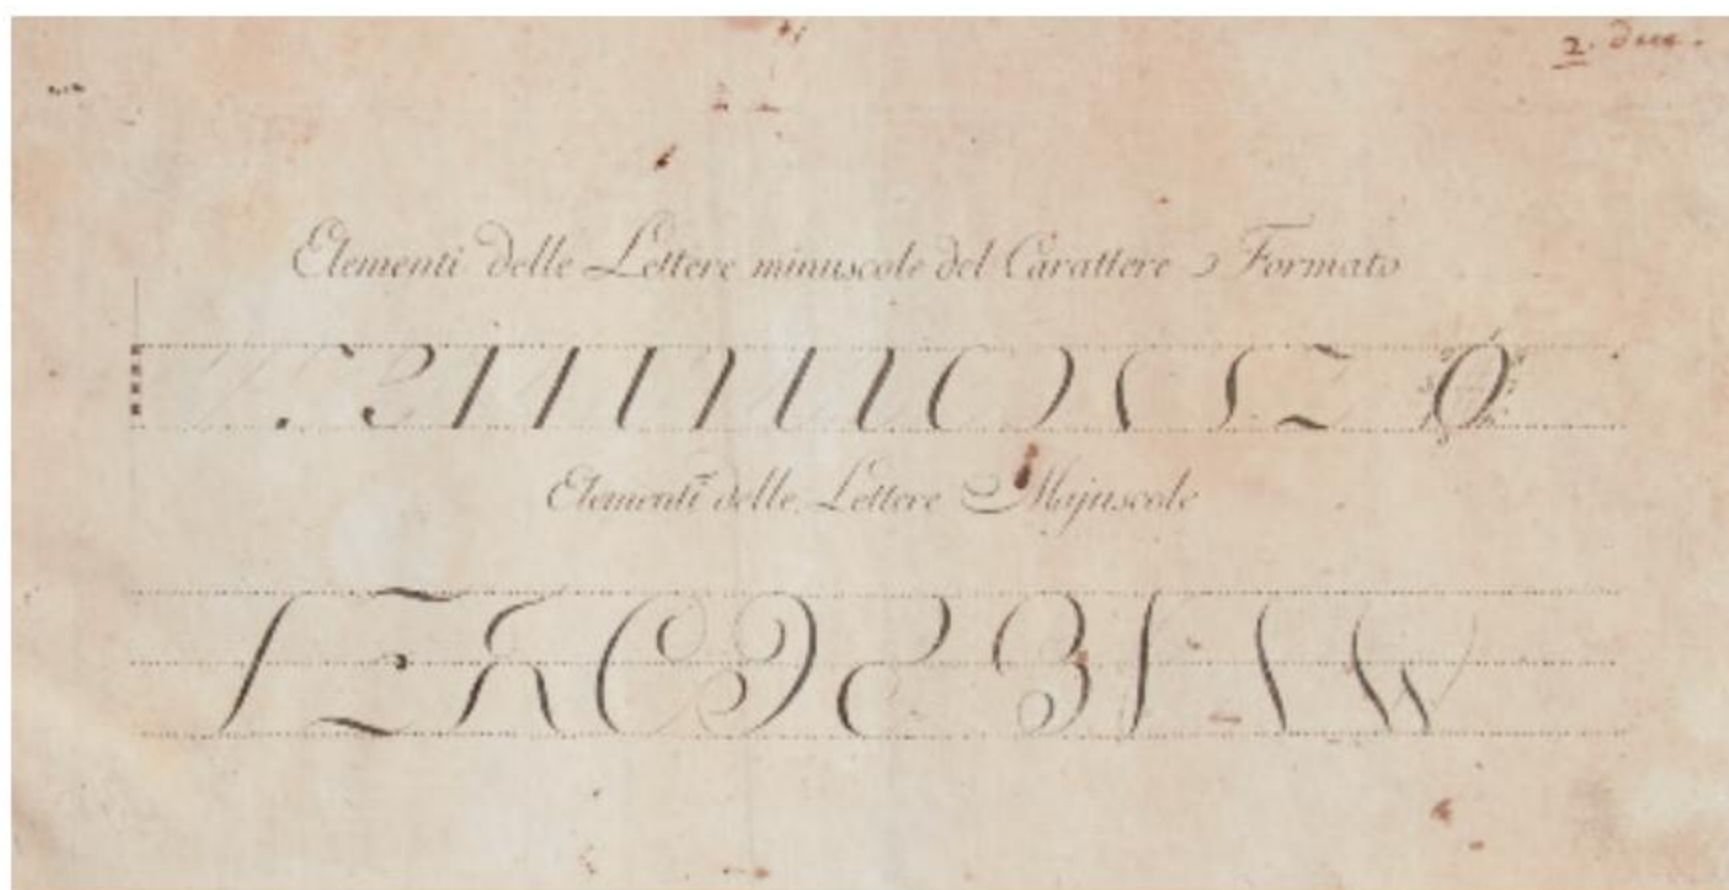 2. due.
Elementi delle Lettere minuscole del Carattere Formato
Elementi delle Lettere Majuscole